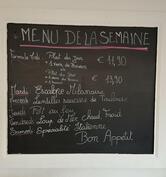 MENU DE LA SEMAINE
Formule Midi Plat du Jour
+ 1 verre de Boisson € 14,90
ou Plat du Jour
+ 1 verre de Boisson € 17,90
Mardi Escalope Milanaise
Mercredi Lentilles saucisses de Toulouse
Jeudi Pot au Feu
Vendredi Loup de Mer chaud Froid
Samedi Spécialité Italienne
Bon Appétit